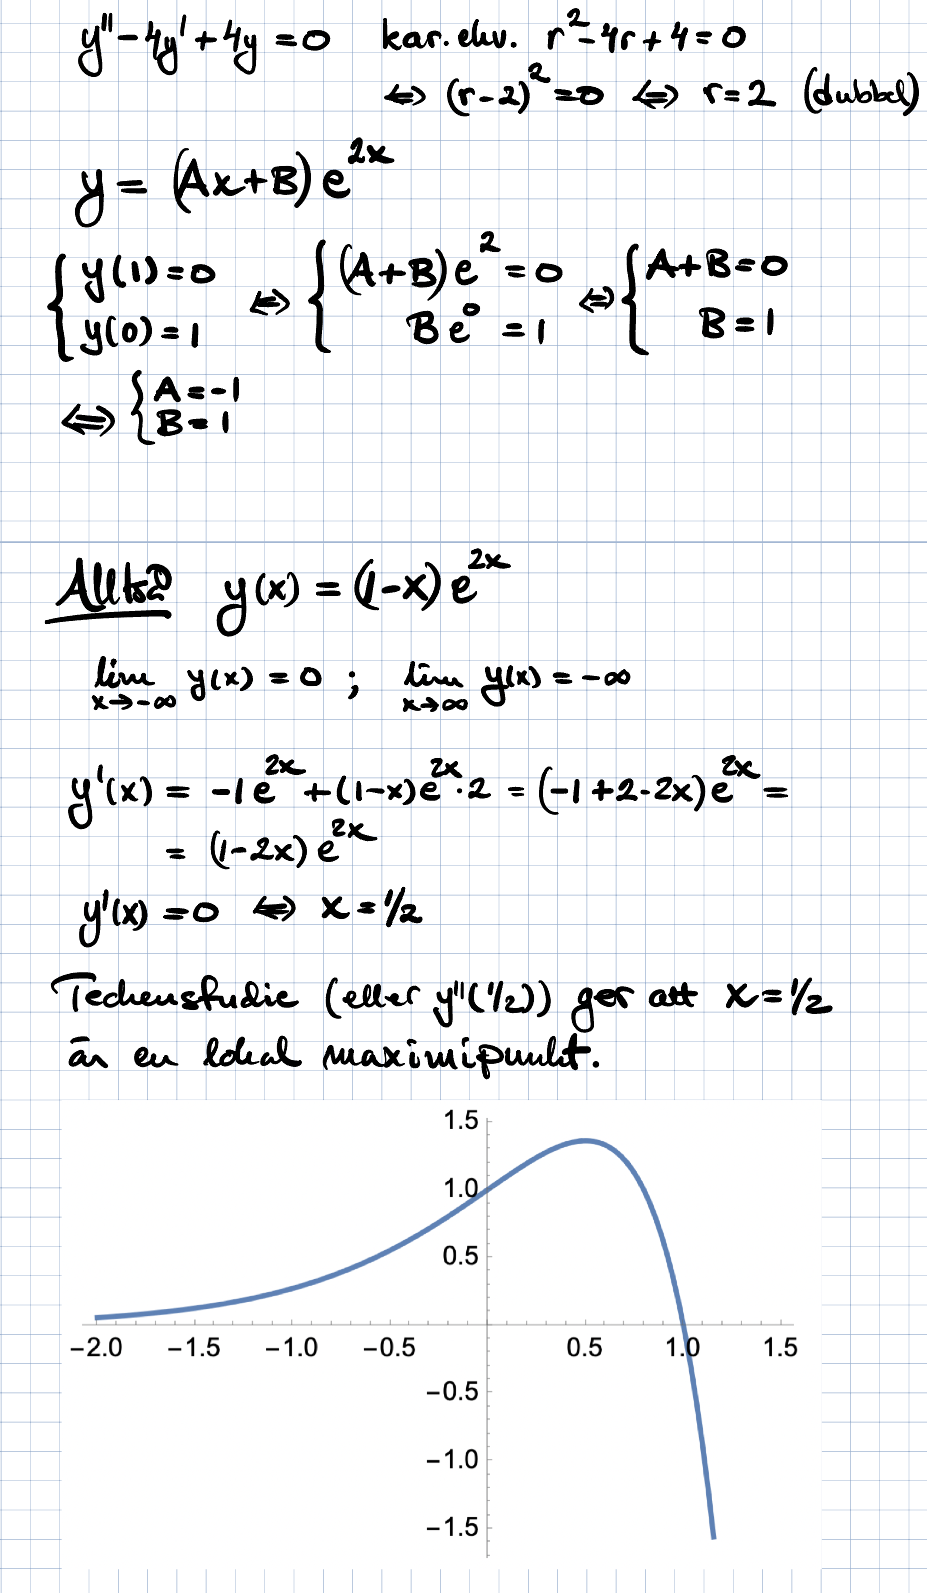 y'' - 4y' + 4y = 0 kar. ekv. r² - 4r + 4 = 0
⇔ (r-2)² = 0 ⇔ r = 2 (dubbel)
y = (Ax+B) e^{2x}
{ y(1) = 0 ⇔ { (A+B) e² = 0 ⇔ { A+B = 0
y(0) = 1 B e⁰ = 1 B = 1
⇔ { A = -1
B = 1
Alltså y(x) = (1-x) e^{2x}
lim_{x→-∞} y(x) = 0 ; lim_{x→∞} y(x) = -∞
y'(x) = -1 e^{2x} + (1-x) e^{2x} · 2 = (-1+2-2x) e^{2x} =
= (1-2x) e^{2x}
y'(x) = 0 ⇔ x = 1/2
Teckenstudie (eller y''(1/2)) ger att x = 1/2
är en lokal maximipunkt.
1.5
1.0
0.5
-2.0 -1.5 -1.0 -0.5 0.5 1.0 1.5
-0.5
-1.0
-1.5